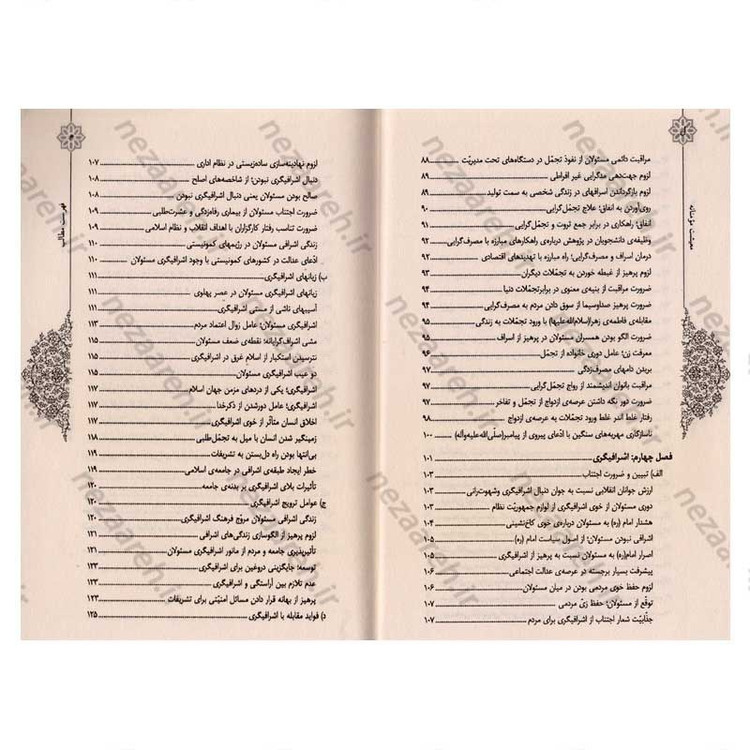 معیشت مؤمنانه
مراقبت دائمی مسئولان از نفوذ تجمّل در دستگاه‌های تحت مدیریّت ۸۸
لزوم جهت‌دهی مدگرایی غیر افراطی ۸۹
لزوم بازگرداندن اسرافهای در زندگی شخصی به سمت تولید ۸۹
روی‌آوردن به انفاق؛ علاج تجمّل‌گرایی ۹۰
انفاق؛ راهکاری در برابر جمع ثروت و تجمّل‌گرایی ۹۱
وظیفه‌ی دانشجویان در پژوهش درباره‌ی راهکارهای مبارزه با مصرف‌گرایی ۹۲
درمان اسراف و مصرف‌گرایی؛ راه مبارزه با تهدیدهای اقتصادی ۹۲
لزوم پرهیز از غبطه خوردن به تجمّلات دیگران ۹۳
ضرورت مراقبت از بنیه‌ی معنوی در برابر تجمّلات دنیا ۹۴
ضرورت پرهیز صداوسیما از سوق دادن مردم به مصرف‌گرایی ۹۴
مقابله‌ی فاطمه‌ی زهرا(سلام‌الله‌علیها) با ورود تجمّلات به زندگی ۹۴
ضرورت الگو بودن همسران مسئولان در پرهیز از اسراف ۹۵
معرفت زن؛ عامل دوری خانواده از تجمّل ۹۶
بریدن دامهای مصرف‌زدگی ۹۷
مراقبت بانوان اندیشمند از رواج تجمّل‌گرایی ۹۷
ضرورت دور نگه داشتن عرصه‌ی ازدواج از تجمّل و تفاخر ۹۷
رفتار غلط اندر غلط ورود تجمّلات به عرصه‌ی ازدواج ۹۸
ناسازگاری مهریه‌های سنگین با ادّعای پیروی از پیامبر(صلّی‌الله‌علیه‌وآله) ۱۰۰
فصل چهارم: اشرافیگری ۱۰۱
الف) تبیین و ضرورت اجتناب ۱۰۳
ارزش جوانان انقلابی نسبت به جوان دنبال اشرافیگری وشهوت‌رانی ۱۰۳
دوری مسئولان از خوی اشرافیگری از لوازم جمهوریّت نظام ۱۰۳
هشدار امام (ره) به مسئولان درباره‌ی خوی کاخ‌نشینی ۱۰۴
اشرافی نبودن مسئولان؛ از اصول سیاست امام (ره) ۱۰۵
اصرار امام(ره) به مسئولان نسبت به پرهیز از اشرافیگری ۱۰۵
پیشرفت بسیار برجسته در عرصه‌ی عدالت اجتماعی ۱۰۶
لزوم حفظ خوی مردمی بودن در میان مسئولان ۱۰۶
توقّع از مسئولان؛ حفظ زیّ مردمی ۱۰۷
جذّابیّت شعار اجتناب از اشرافیگری برای مردم ۱۰۷
فهرست مطالب
لزوم نهادینه‌سازی ساده‌زیستی در نظام اداری ۱۰۷
دنبال اشرافیگری نبودن؛ از شاخصه‌های اصلح ۱۰۸
صالح بودن مسئولان یعنی دنبال اشرافیگری نبودن ۱۰۸
ضرورت اجتناب مسئولان از بیماری رفاه‌زدگی و عشرت‌طلبی ۱۰۹
ضرورت تناسب رفتار کارگزاران با اهداف انقلاب و نظام اسلامی ۱۰۹
زندگی اشرافی مسئولان در رژیمهای کمونیستی ۱۱۰
ادّعای عدالت در کشورهای کمونیستی با وجود اشرافیگری مسئولان ۱۱۰
ب) زیانهای اشرافیگری ۱۱۱
زیانهای اشرافیگری مسئولان در عصر پهلوی ۱۱۱
آسیبهای ناشی از مستی اشرافیگری ۱۱۱
اشرافیگری مسئولان؛ عامل زوال اعتماد مردم ۱۱۳
مشی اشراف‌گرایانه؛ نقطه‌ی ضعف مسئولان ۱۱۵
نترسیدن استکبار از اسلام غرق در اشرافیگری ۱۱۵
دو عیب اشرافیگری مسئولان ۱۱۵
اشرافیگری؛ یکی از دردهای مزمن جهان اسلام ۱۱۷
اشرافیگری؛ عامل دورشدن از ذکرخدا ۱۱۷
اخلاق انسان متأثّر از خوی اشرافیگری ۱۱۷
زمینگیر شدن انسان با میل به تجمّل‌طلبی ۱۱۸
بی‌انتها بودن راه دل‌بستن به تشریفات ۱۱۹
خطر ایجاد طبقه‌ی اشرافی در جامعه‌ی اسلامی ۱۱۹
تأثیرات بلای اشرافیگری بر بدنه‌ی جامعه ۱۲۰
ج) عوامل ترویج اشرافیگری ۱۲۰
زندگی اشرافی مسئولان مروّج فرهنگ اشرافیگری ۱۲۰
لزوم پرهیز از الگوسازی زندگی‌های اشرافی ۱۲۱
تأثیرپذیری جامعه و مردم از مانور اشرافیگری مسئولان ۱۲۱
توسعه؛ جایگزینی دروغین برای اشرافیگری ۱۲۳
عدم تلازم بین آراستگی و اشرافیگری ۱۲۳
پرهیز از بهانه قرار دادن مسائل امنیّتی برای تشریفات ۱۲۳
د) فواید مقابله با اشرافیگری ۱۲۵
nezaareh.ir